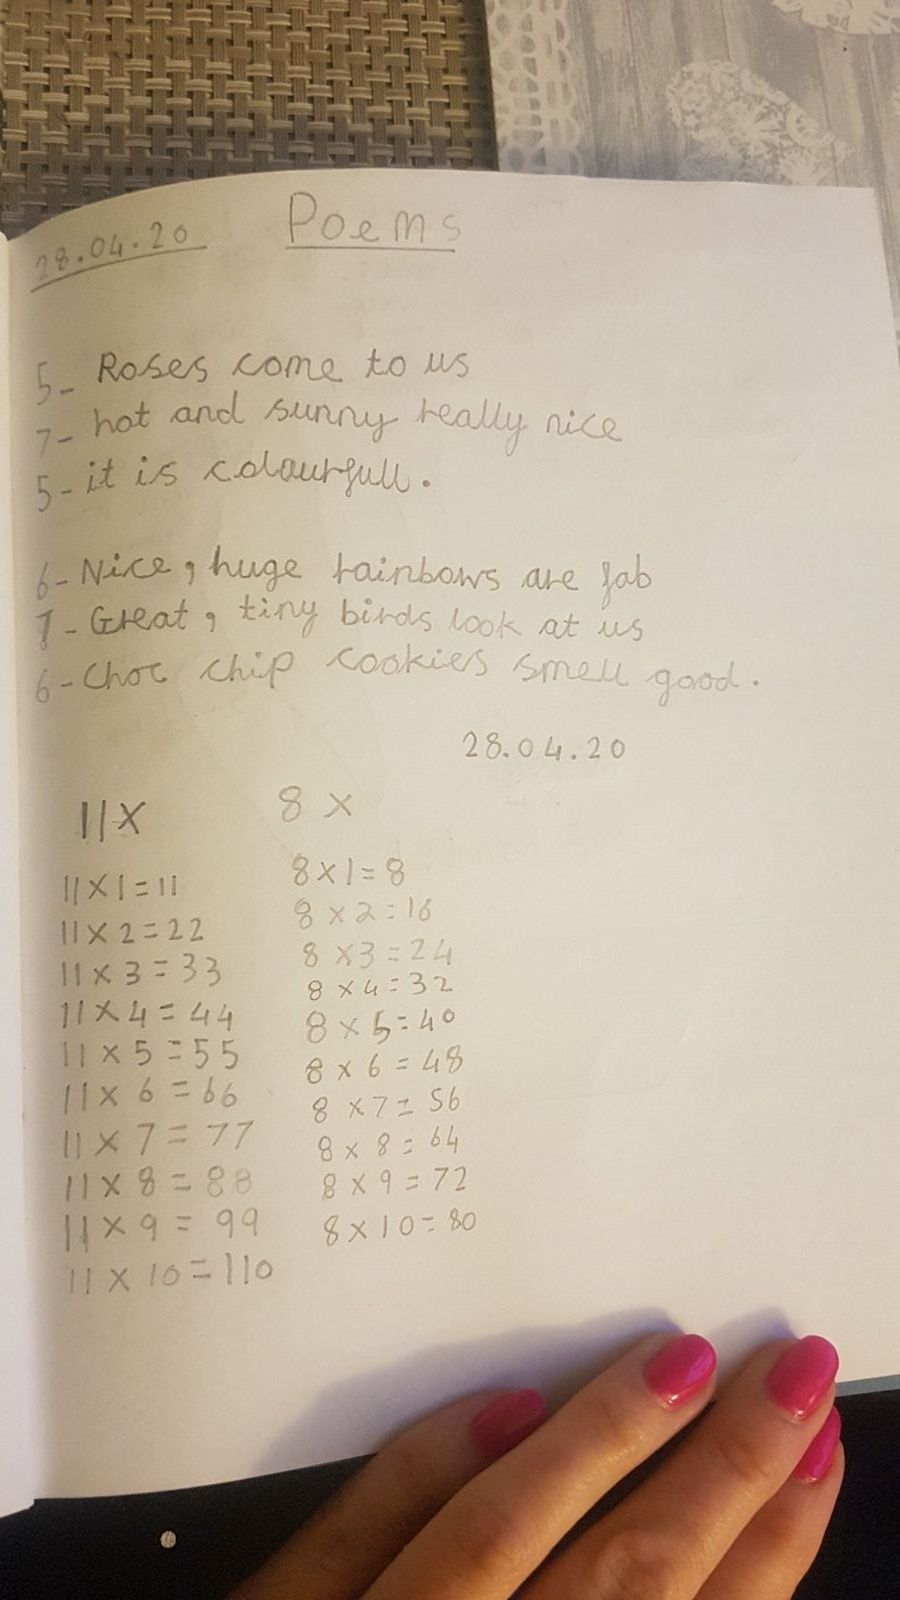 28.04.20 Poems
5- Roses come to us
7- hot and sunny really nice
5- it is colourfull.
6- Nice, huge rainbows are fab
7- Great, tiny birds look at us
6- Choc chip cookies smell good.
28.04.20
11x 8 x
11 x 1 = 11 8 x 1 = 8
11 x 2 = 22 8 x 2 = 16
11 x 3 = 33 8 x 3 = 24
11 x 4 = 44 8 x 4 = 32
11 x 5 = 55 8 x 5 = 40
11 x 6 = 66 8 x 6 = 48
11 x 7 = 77 8 x 7 = 56
11 x 8 = 88 8 x 8 = 64
11 x 9 = 99 8 x 9 = 72
11 x 10 = 110 8 x 10 = 80